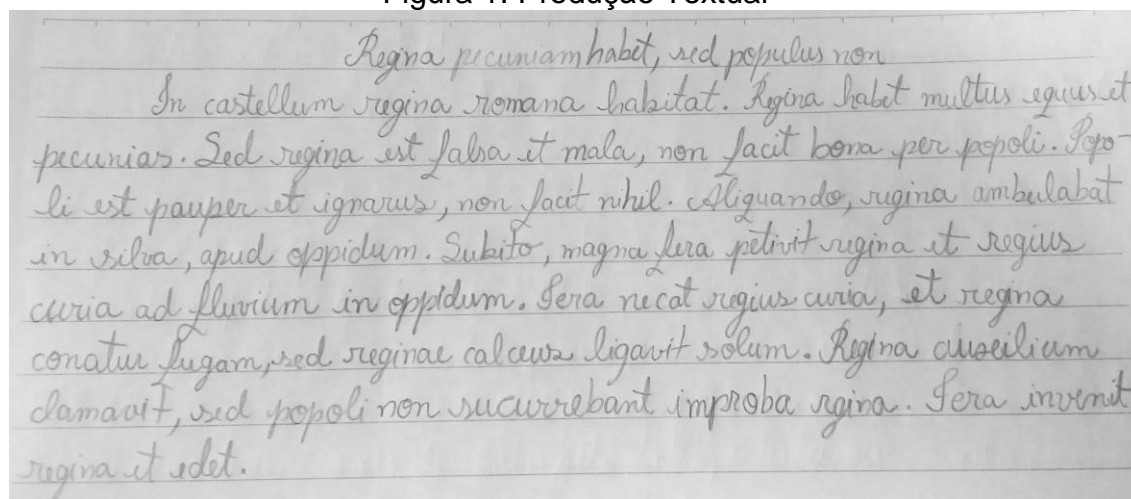 Figura 1: Produção Textual
Regina pecuniam habet, sed populus non
In castellum regina romana habitat. Regina habet multus equus et
pecunias. Sed regina est falsa et mala, non facit bona per popoli. Popo-
li est pauper et ignarus, non facit nihil. Aliquando, regina ambulabat
in silva, apud oppidum. Subito, magna fera petivit regina et regius
curia ad fluvium in oppidum. Fera necat regius curia, et regina
conatur fugam, sed reginae calceus ligavit solum. Regina auxilium
clamavit, sed popoli non sucurrebant improba regina. Fera invenit
regina et edet.